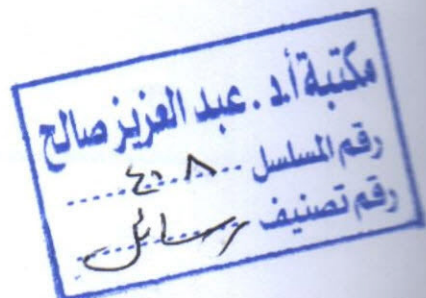 مكتبة أ.د. عبد العزيز صالح
رقم المسلسل ٤٠٨
رقم تصنيف رسائل